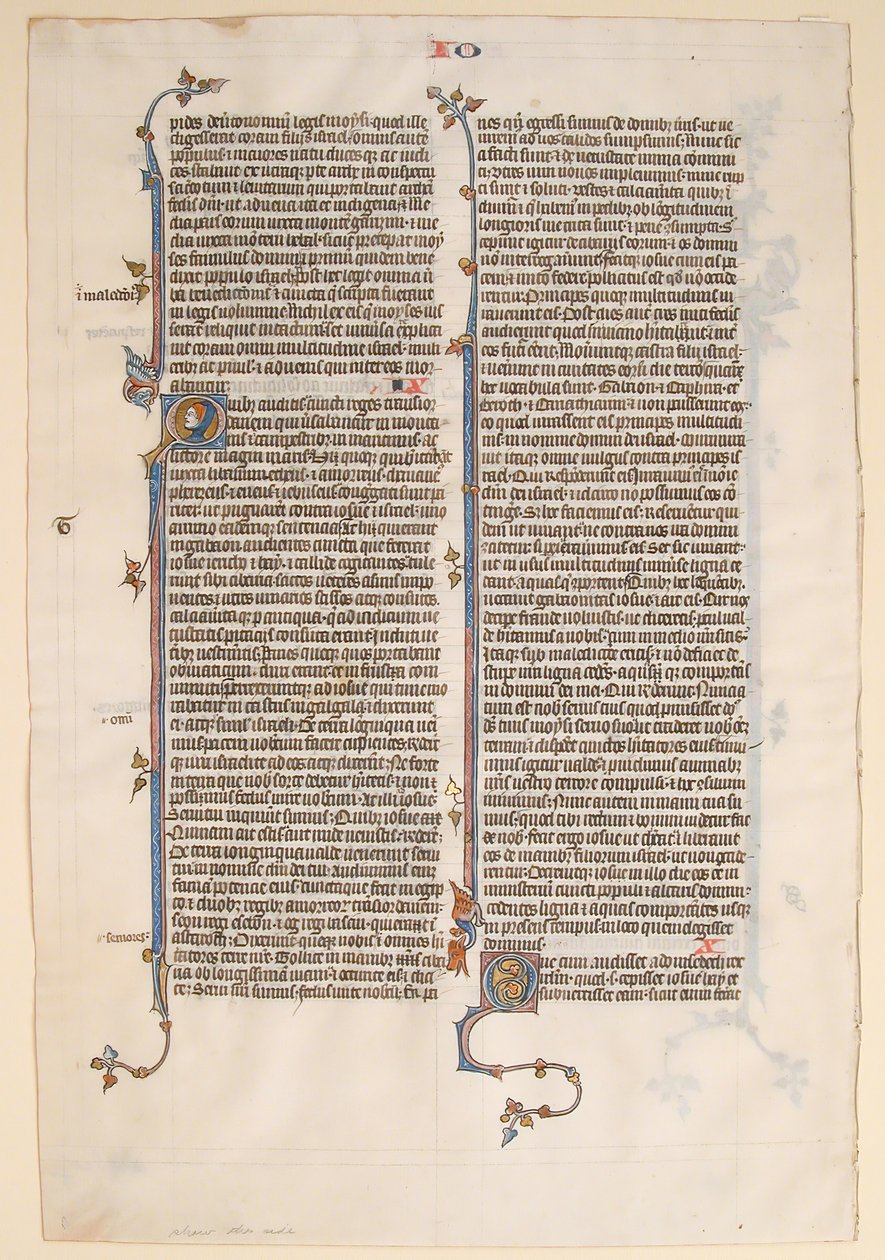 IO
pides deut̃onomiũ legis moysi quod ille
digesserat coram filijs israel. omnis autẽ
populus ⁊ maiores natu duces q3 ac iudi-
ces stabant ex utraq3 pte arche in conspectu
sacerdotum ⁊ leuitarum qui portabant archã
federis dñi. ut aduena ita et indigena. Me-
dia pars eorum iuxta montẽ garizim. ⁊ me-
dia iuxta mõtem hebal. sicut preceperat moy
ses famulus domini. ⁊ primum quidem bene
dixit populo israel. Post hec legit omnia ũ
ba benedictionis ⁊ cuncta q̃ scripta fuerant
⁊ maledc̃oĩs
in legis uolumine. Nichil ex eis q̃ moyses ius
serat reliquit intactum. set uniuersa explica
uit coram omni multitudine israel. muli
eribus ac paruulis. ⁊ aduenis qui inter eos mor-
abantur.
X
Quibus auditis cuncti reges transior
danem qui ũsabantur in monta
nis ⁊ campestribus. in maritimis. ac
littore magni maris. Hij quoq3 qui habitabãt
iuxta libanum. etheus. ⁊ amorreus. chananeus
pherezeus. ⁊ eueus ⁊ iebuseus congregati sunt pa
riter. ut pugnarent contra iosue ⁊ israel. uno
animo eademq3 sentencia. At hij qui erant
in gabaon audientes cuncta que fecerat
iosue iericho ⁊ hay. ⁊ callide cogitantes tule
runt sibi cibaria. saccos ueteres asinis impo
nentes ⁊ utres uinarios scissos atq3 consutos.
calciamẽta q3 pantiqua. q̃ ad indicium ue
tustatis pitaciis consuta erant. Induti ue
terib; uestimentis. Panes quoq3 quos portabant
ob uiaticum. duri erant. et in frustra com
minuti. Perrexeruntq3 ad iosue qui tunc mo
rabatur in castris in galgala. ⁊ dixerunt
omi
ei. atq3 simul israeli. De terra lõginqua ueni
mus pacem uobiscum facere cupientes. Respõ
q3 uiri israelite ad eos atq3 dixerũt. Ne forte
in terra que uob sorte debetur habitetis. ⁊ non
possimus fedus inire uobiscum. At illi ad iosue
Serui tui inquiunt sumus. Quibus iosue ait
Quinam aut estis. aut unde uenistis. Respõderũt.
De terra longinqua ualde uenerunt serui
tui in nomine dñi dei tui. Audiuimus enim
famam potencie eius. cunctaque fecit in egip
to. ⁊ duobus regibus amorreor. transiordanem.
seon regi esebon. ⁊ og regi basan. qui erant ĩ
seniores
astaroth. Dixerunt quoq3 nobis ⁊ omnes ha
tatores terre. Tollite in manibus ciba
ria ob longissimam uiam. ⁊ occurrite eis. ⁊ dici
te. Serui uestri sumus. fedus inite nobiscum. En pa
nes qñ egressi sumus de domibus nr̃is. ut ue
niremus ad uos calidos sumpsimus. Nunc sic
ci facti sunt. ⁊ de uetustate nimia cõminu
ti. Vtres uini nouos impleuimus. nunc rup
ti sunt ⁊ soluti. Vestes ⁊ calciamẽta quibus ĩ
duimur ⁊ q̃ habemus in pedibus ob lõgitudinem
longioris uie trita sunt. ⁊ pene ɔsumpta. S
ceperunt igitur de cibariis eorum. ⁊ os domini
nõ interrogauerunt. fecitq3 iosue cum eis pa
cem. ⁊ inito federe pollicitus est qđ nõ occide
rentur. Principes quoq3 multitudinis iu
rauerunt eis. Post dies aut tres initi federis
audierunt quod in uicino habitarent. ⁊ int
eos futi cẽnt. Mouuntq3 castra filij israel.
⁊ uenerunt in ciuitates eorum die tercio. quarũ
hec uocabula sunt. Gabaon ⁊ Caphira. et
Beroth. ⁊ Cariathiarim. ⁊ non percusserunt eos.
eo quod iurassent eis principes multitudi
nis. in nomine domini dei israel. Murmura
uit itaq3 omne uulgus contra principes is
rael. Qui respõderunt eis. Iurauimus illis in noĩe
dñi dei israel. ⁊ idcirco nõ possumus eos cõ
tingere. Set hec faciemus eis. Reseruentur qui
dem ut uiuant. ne contra nos ira domini
ɔcitetur. si peierauerimus eis. Set sic uiuant.
ut in usus multitudinis uniuerse ligna ce
dant. aquas q3 cõportent. Quibus hec loquẽtibus.
uocauit gabaonitas iosue. ⁊ ait eis. Cur nos
decipere fraude uoluistis. ut diceretis. procul ual
de habitamus a uobis. cum in medio nri sitis.
Itaq3 sub maledictione eritis. ⁊ nõ deficiet de
stirpe uestra ligna cedens. aquasq3 comportans
in domum dei mei. Qui responderunt. Nuncia
tum est nob seruis tuis quod promisisset dñs
ds tuus moysi seruo suo ut traderet uobis oẽm
terram. ⁊ disperderet cunctos habitatores eius. timui
mus igitur ualde. ⁊ prouidimus animabus
nr̃is uestro terrore compulsi. ⁊ hoc ɔsilium
inimus. Nunc autem in manu tua su
mus. quod tibi rectum ⁊ bonum uidetur fac
de nob. Fecit ergo iosue ut dixerat. ⁊ liberauit
eos de manibus filiorum israel. ut non occide-
rentur. Decreuitq3 iosue in illo die eos eẽ in
ministerium cuncti populi ⁊ altaris domini.
cedentes ligna ⁊ aquas comportãtes usq3
in presens tempus. in loco quem elegisset
dominus.
X
Que cum audisset adonisedech rex
irlm̃. quod s. cepisset iosue hay et
subuertisset eam. sicut enim fecerat
show this side